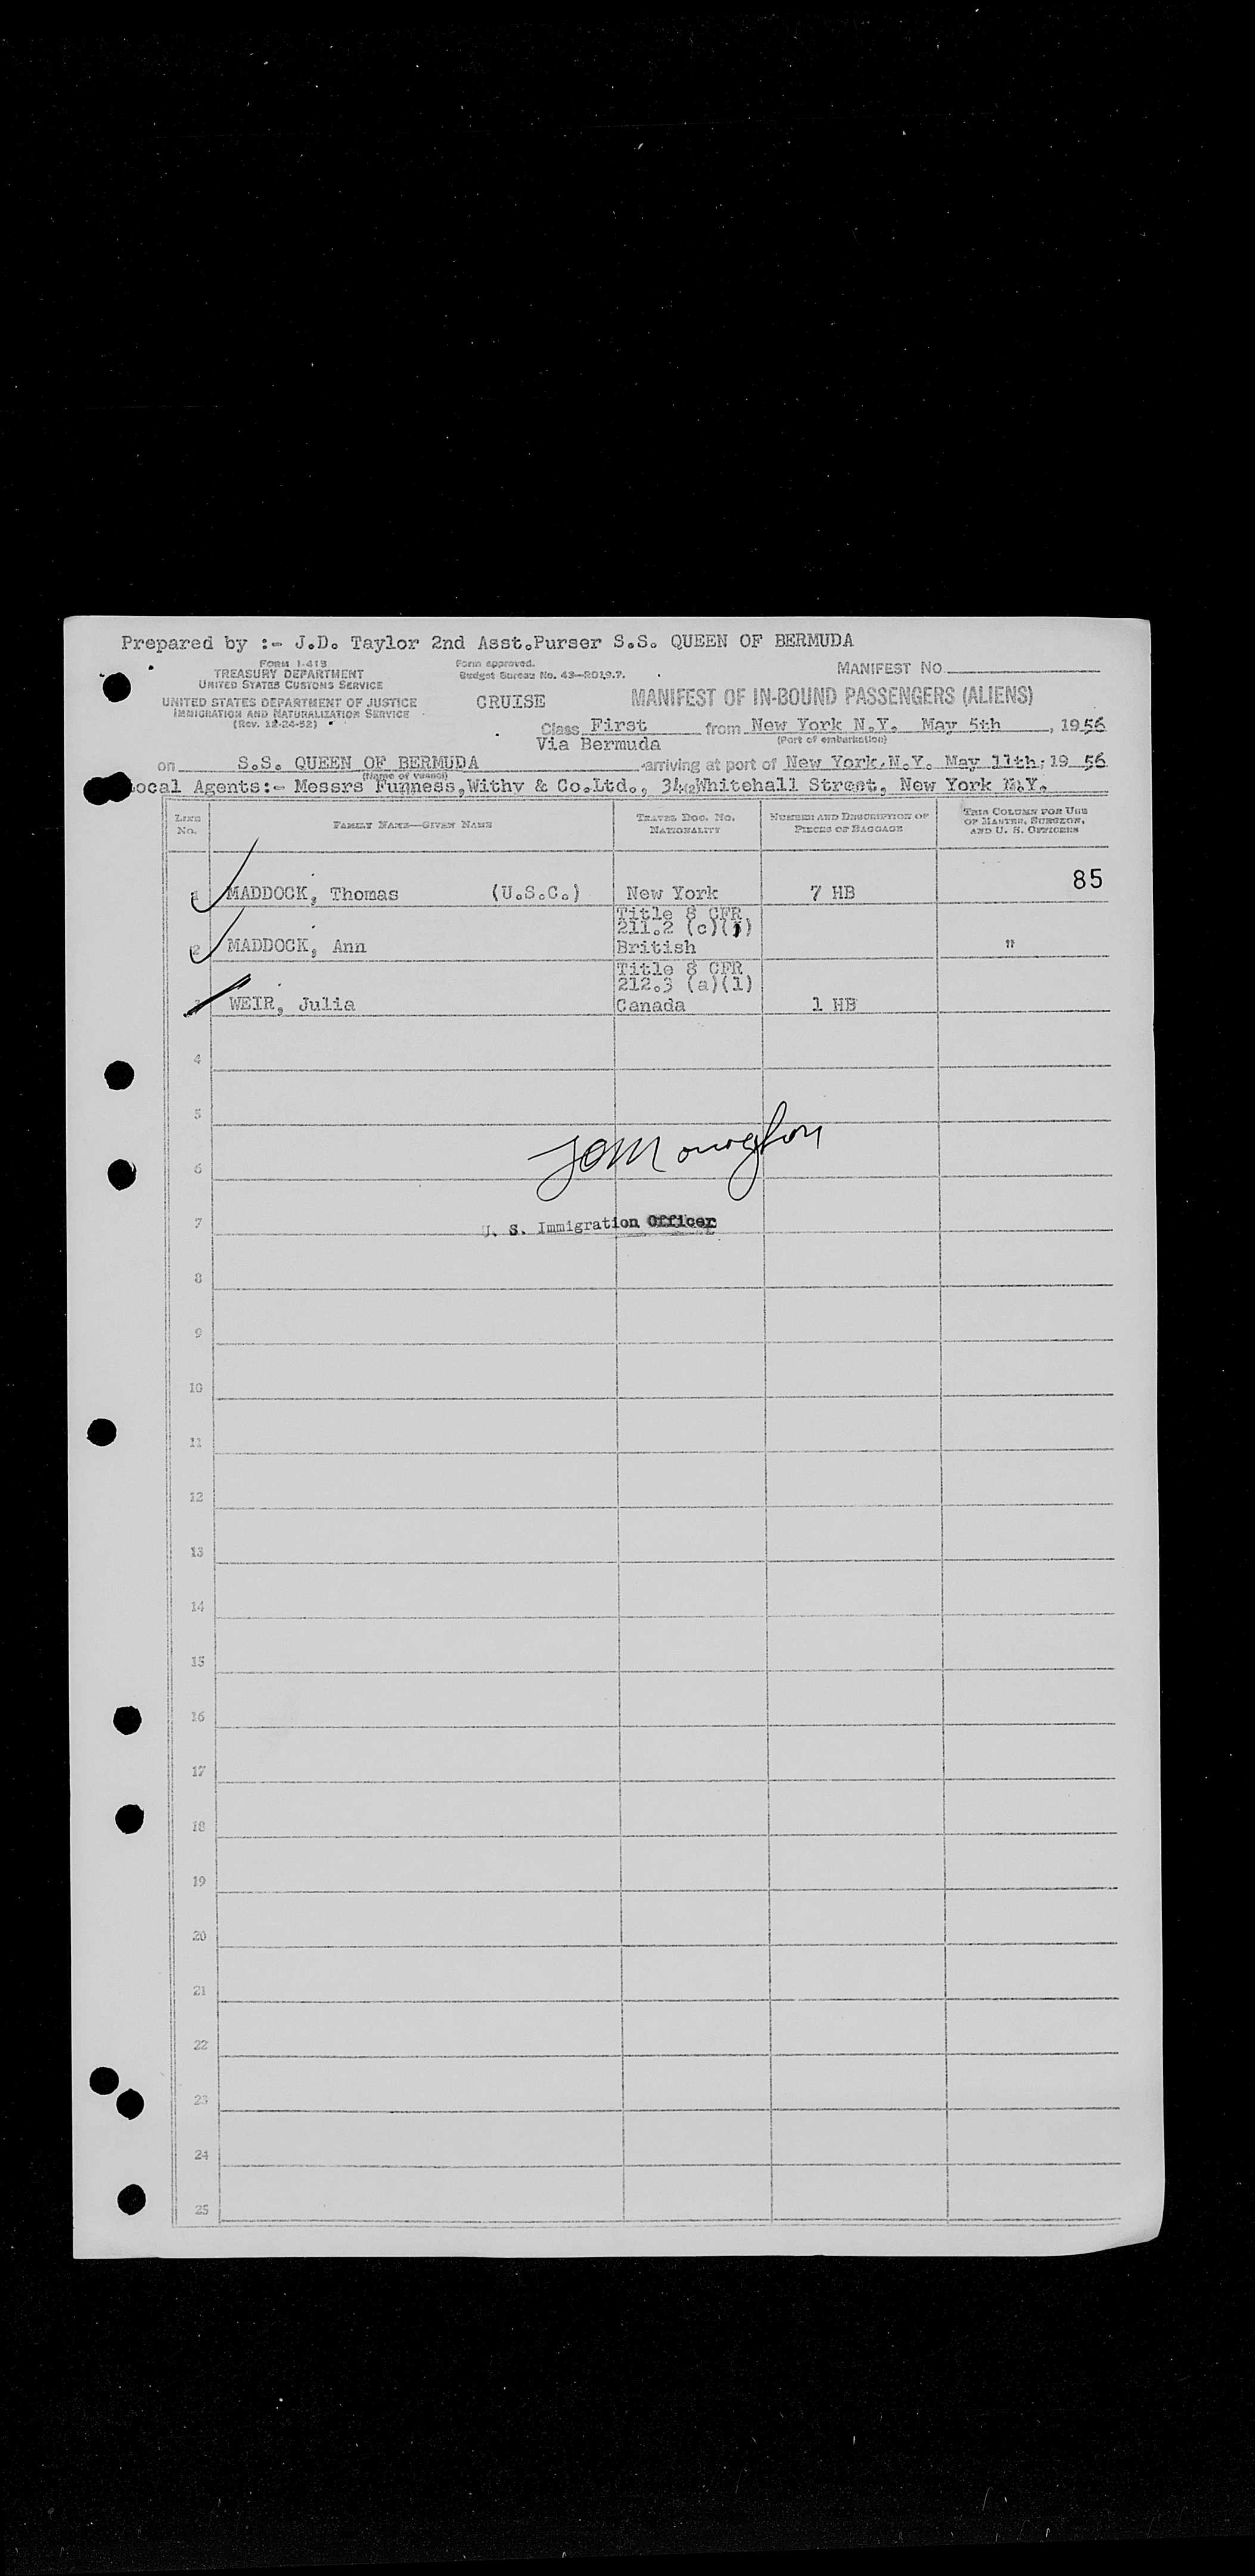 Prepared by :- J.D. Taylor 2nd Asst.Purser S.S. QUEEN OF BERMUDA
FORM I-418
TREASURY DEPARTMENT
UNITED STATES CUSTOMS SERVICE
Form approved.
Budget Bureau No. 43—R019.7.
MANIFEST NO.
UNITED STATES DEPARTMENT OF JUSTICE
IMMIGRATION AND NATURALIZATION SERVICE
(Rev. 12-24-52)
CRUISE
MANIFEST OF IN-BOUND PASSENGERS (ALIENS)
Class First from New York N.Y. May 5th, 1956
Via Bermuda
(Port of embarkation)
on S.S. QUEEN OF BERMUDA arriving at port of New York.N.Y. May 11th, 19 56
(Name of vessel)
Local Agents:- Messrs Furness,Withy & Co.Ltd., 34 Whitehall Street, New York N.Y.
LINE No.
FAMILY NAME—GIVEN NAME
TRAVEL DOC. NO. NATIONALITY
NUMBER AND DESCRIPTION OF PIECES OF BAGGAGE
THIS COLUMN FOR USE OF MASTER, SURGEON, AND U. S. OFFICERS
85
1 MADDOCK, Thomas (U.S.C.) New York 7 HB
Title 8 CFR
211.2 (c)(1)
2 MADDOCK, Ann British "
Title 8 CFR
212.3 (a)(1)
3 WEIR, Julia Canada 1 HB
4
5
6
7 U. S. Immigration Officer
8
9
10
11
12
13
14
15
16
17
18
19
20
21
22
23
24
25